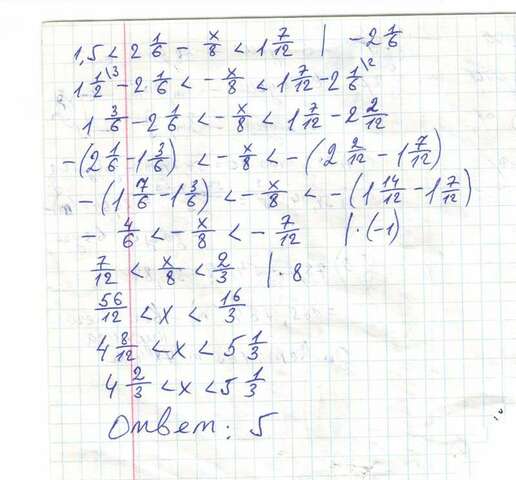 1,5 < 2 1/6 - x/8 < 1 7/12 | -2 1/6
1 1/2\3 - 2 1/6 < - x/8 < 1 7/12 - 2 1/6\2
1 3/6 - 2 1/6 < - x/8 < 1 7/12 - 2 2/12
-(2 1/6 - 1 3/6) < - x/8 < -(2 2/12 - 1 7/12)
-(1 7/6 - 1 3/6) < - x/8 < -(1 14/12 - 1 7/12)
- 4/6 < - x/8 < - 7/12 | · (-1)
7/12 < x/8 < 2/3 | · 8
56/12 < x < 16/3
4 8/12 < x < 5 1/3
4 2/3 < x < 5 1/3
Ответ: 5